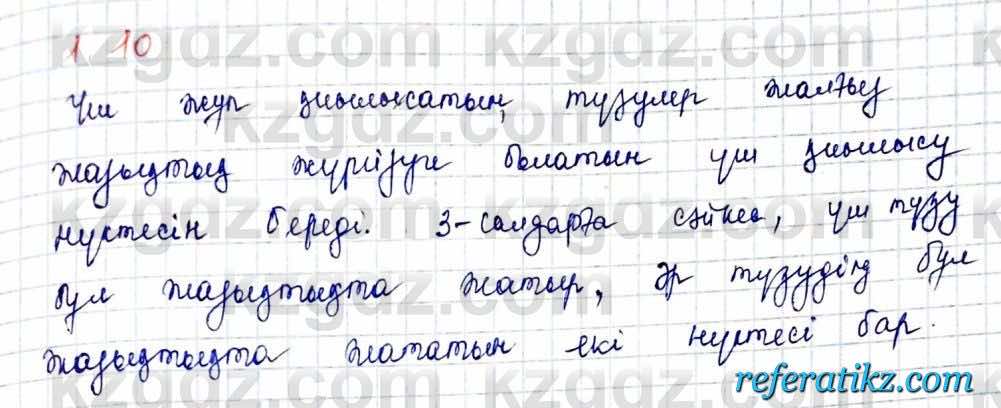 1 10
Үш жұп қиылысатын, түзулер жалғыз
жазықтық жүргізуге болатын үш қиылысу
нүктесін береді. 3-салдарға сәйкес, үш түзу
бұл жазықтықта жатыр, әр түзудің бұл
жазықтықта жататын екі нүктесі бар.
referatikz.com